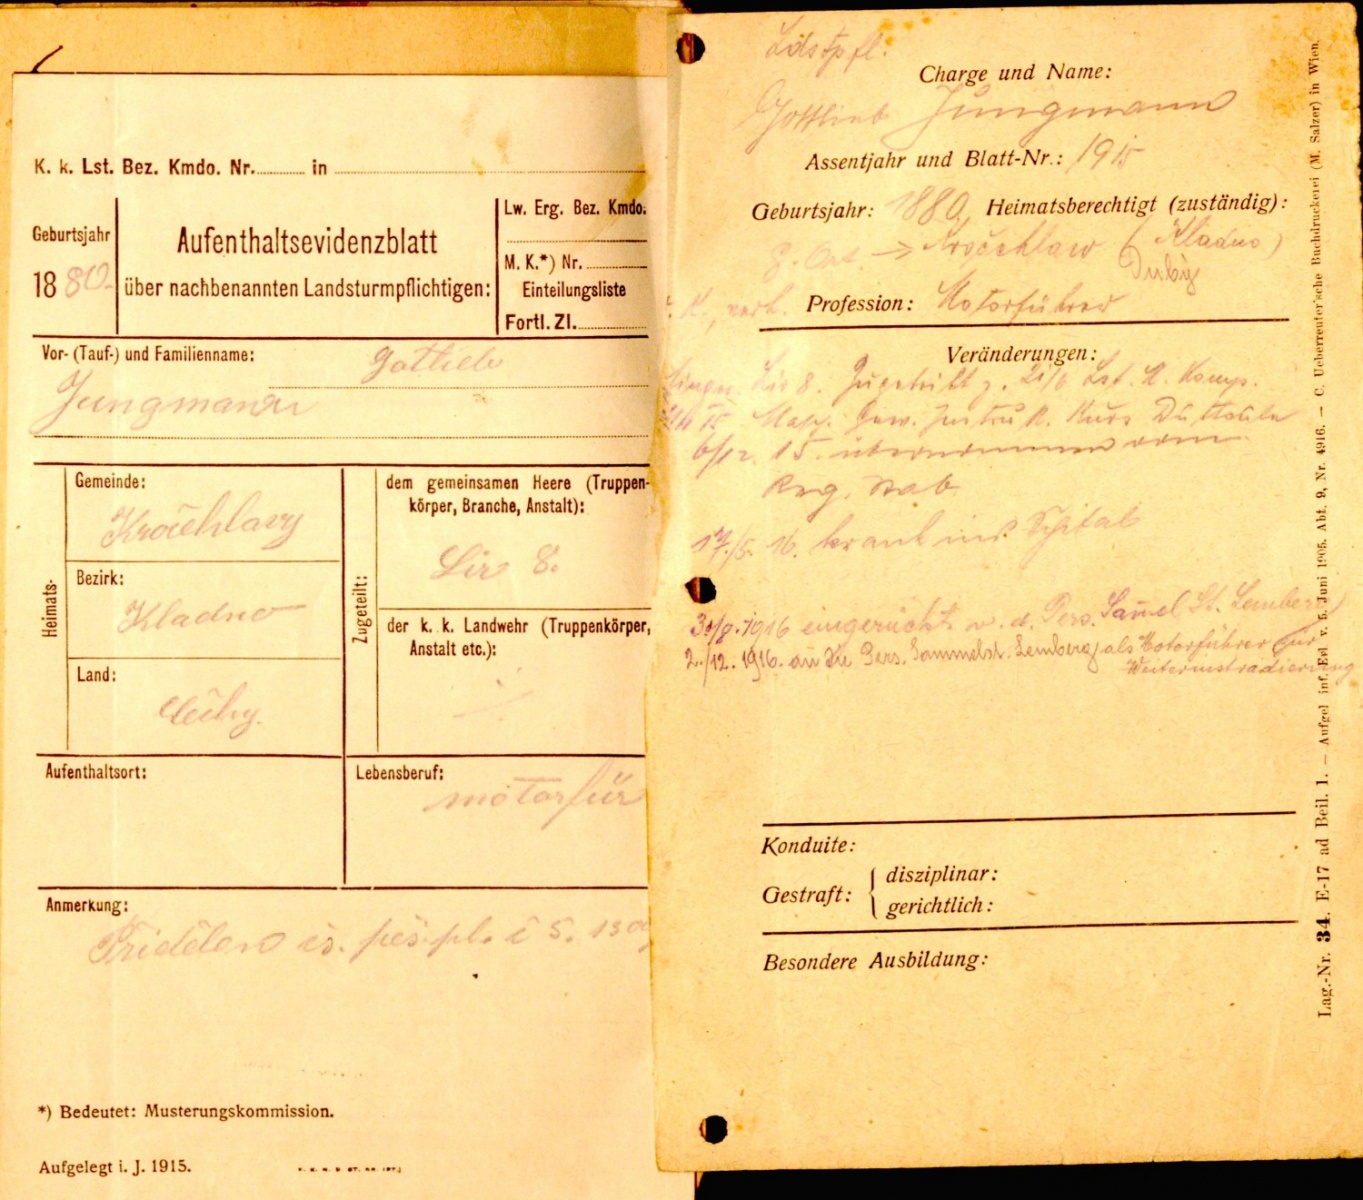 K. k. Lst. Bez. Kmdo. Nr. in
Geburtsjahr
1880
Aufenthaltsevidenzblatt
über nachbenannten Landsturmpflichtigen:
Lw. Erg. Bez. Kmdo.
M. K.*) Nr.
Einteilungsliste
Fortl. Zl.
Vor- (Tauf-) und Familienname: Gottlieb
Jungmann
Heimats-
Gemeinde:
Kročehlavy
Bezirk:
Kladno
Land:
Čechy.
Zugeteilt:
dem gemeinsamen Heere (Truppen-
körper, Branche, Anstalt):
Lir 8.
der k. k. Landwehr (Truppenkörper,
Anstalt etc.):
Aufenthaltsort:
Lebensberuf:
motorfür
Anmerkung:
Přidělen
*) Bedeutet: Musterungskommission.
Aufgelegt i. J. 1915.
Ldstpfl.
Charge und Name:
Gottlieb Jungmann
Assentjahr und Blatt-Nr.: 1915
Geburtsjahr: 1880, Heimatsberechtigt (zuständig):
G. Ort → Kročehlaw (Kladno)
Duby
verh. Profession: Motorführer
Veränderungen:
Lir 8. Zugeteilt z. Lst. K. Komp.
Kurs
15. übernommen vom
Reg. Stab
17./5. 16. krank ins Spital
30/8. 1916 eingerückt v. d. Pers. Samel St. Lemberg
2./12. 1916. an die Pers. Sammelst. Lemberg als Motorführer zur
Weiterinstradierung
Konduite:
Gestraft: { disziplinar:
gerichtlich:
Besondere Ausbildung:
Lag.-Nr. 34. E-17 ad Beil. 1. — Aufgel inf. Erl v. 5. Juni 1905. Abt. 2, Nr. 4916. — C. Ueberreuter'sche Buchdruckerei (M. Salzer) in Wien.